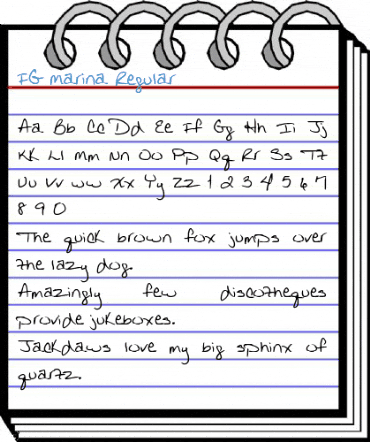 FG Marina Regular
Aa Bb Cc Dd Ee Ff Gg Hh Ii Jj
Kk Ll Mm Nn Oo Pp Qq Rr Ss Tt
Uu Vv Ww Xx Yy Zz 1 2 3 4 5 6 7
8 9 0
The quick brown fox jumps over
the lazy dog.
Amazingly few discotheques
provide jukeboxes.
Jackdaws love my big sphinx of
quartz.